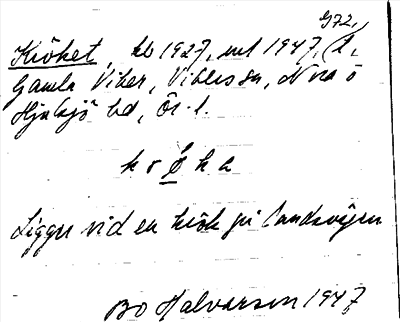 G72,
Kröket, bb 1927, uel 1947, l,
Gamla Viker, Vikers sn, Nora o
Hjulsjö bd, Ör. l.
k r ø k a
Ligger vid en krök på landsvägen
Bo Halvarson 1947